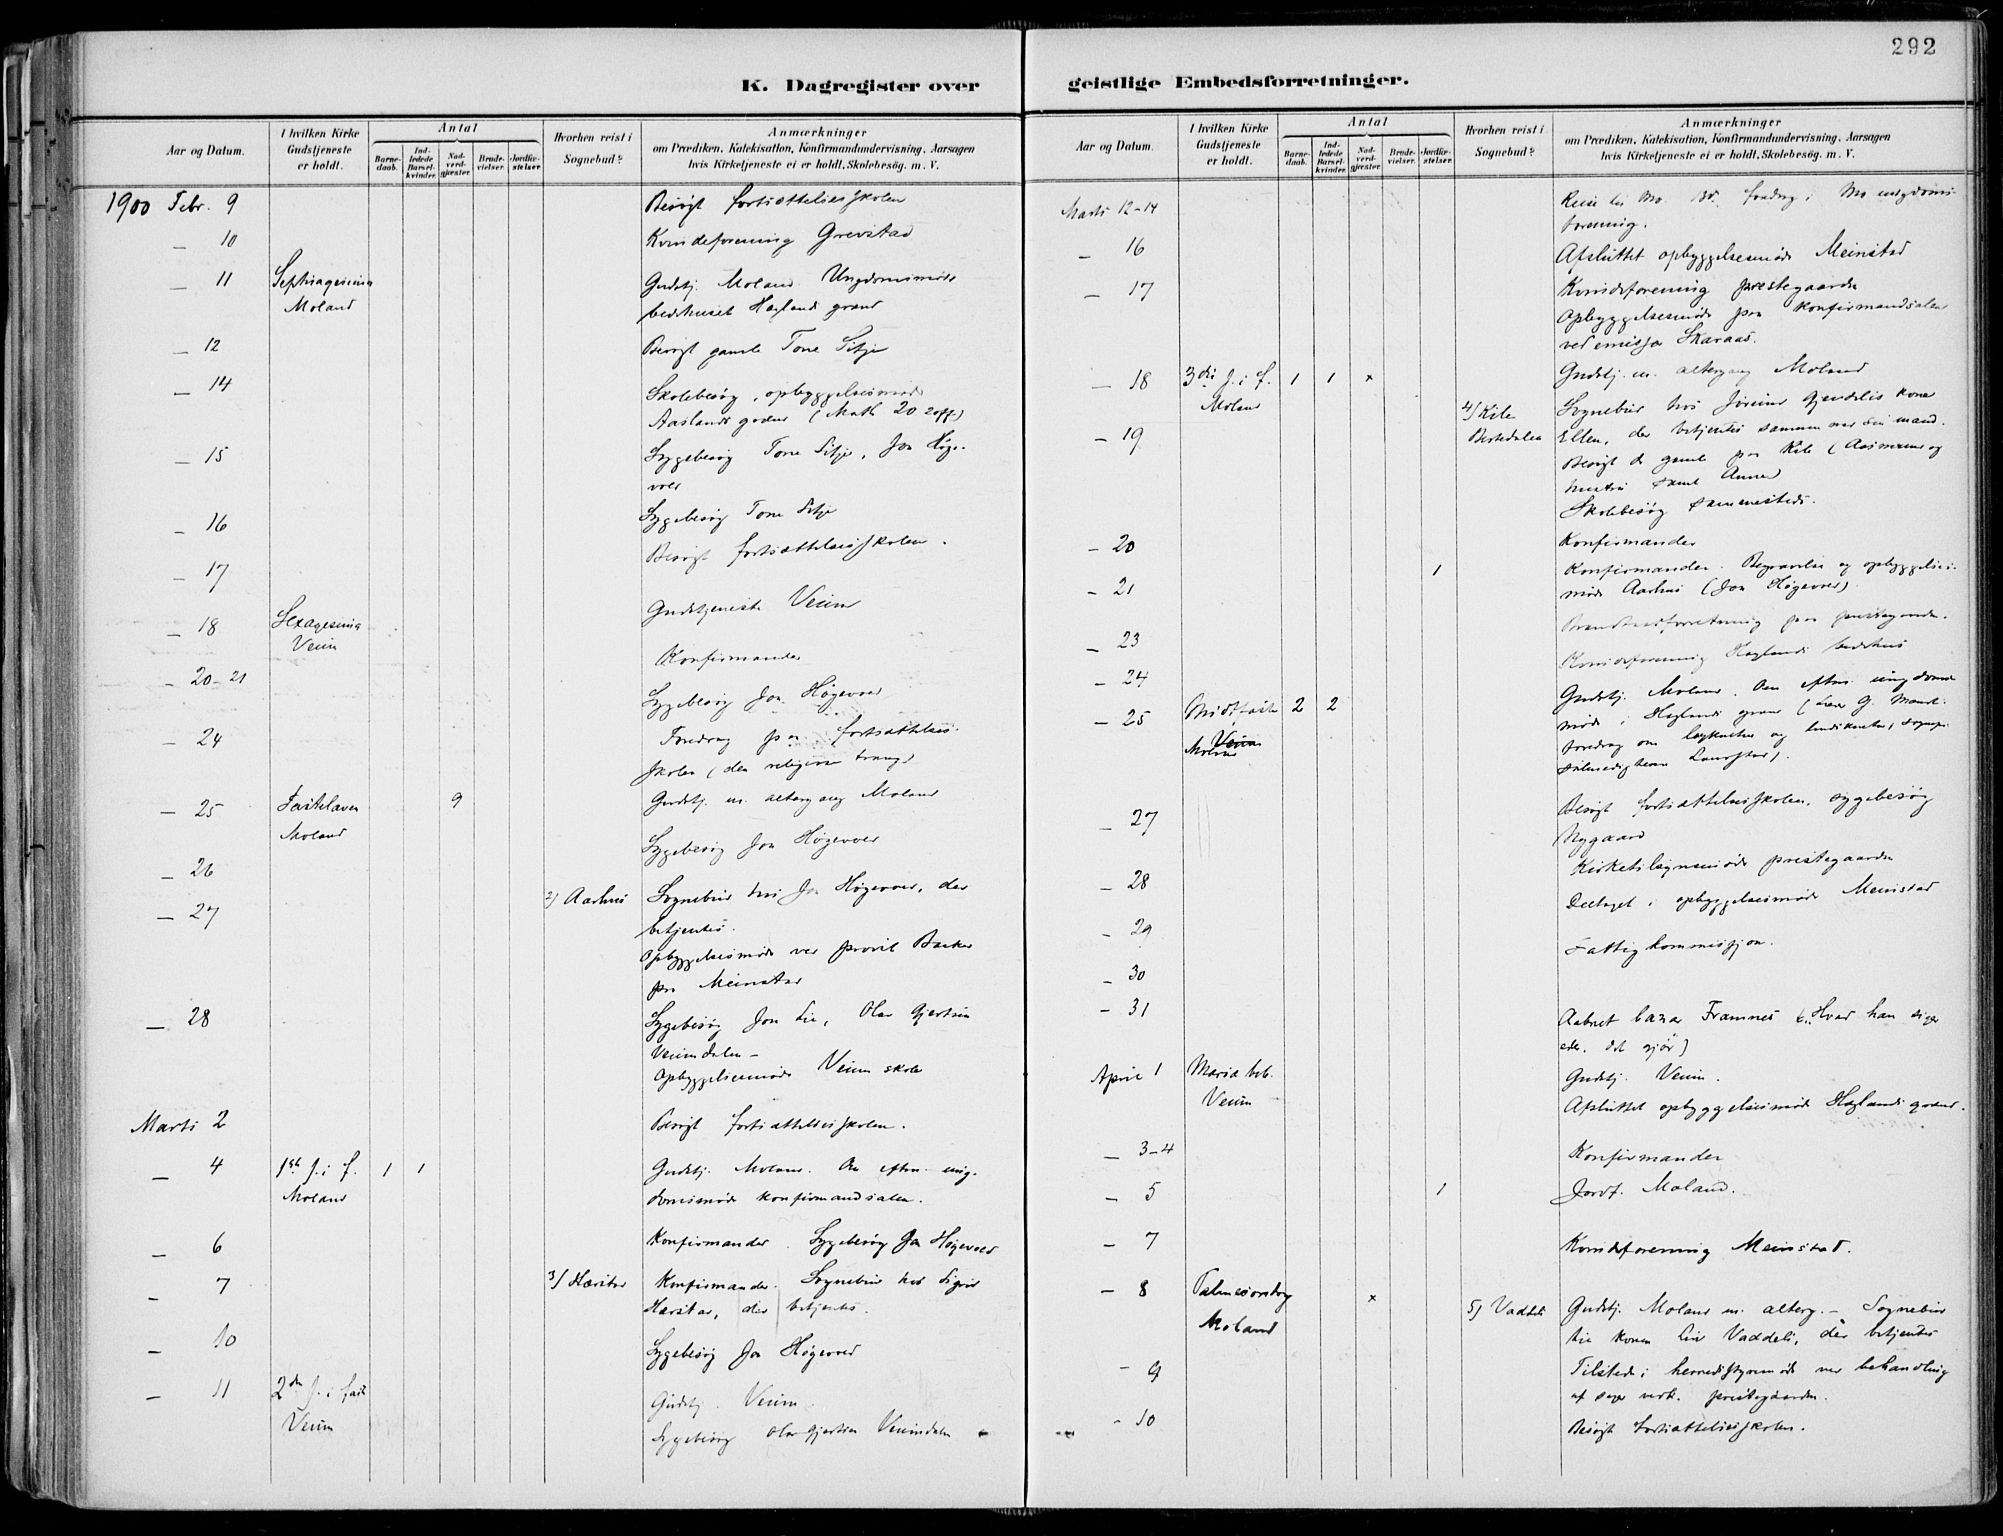 292
K. Dagregister over
geistlige Embedsforretninger.
Aar og Datum.
I hvilken Kirke
Gudstjeneste
er holdt.
Antal
Barne-
daab.
Ind-
ledede
Barsel-
kvinder.
Nad-
verd-
gjæster.
Brude-
vielser.
Jordfæ-
stelser.
Hvorhen reist i
Sognebud?
Anmærkninger
om Prædiken, Katekisation, Konfirmandundervisning, Aarsagen
hvis Kirketjeneste ei er holdt, Skolebesøg, m. V.
1900 Febr. 9 Besøgt fortsættelsesskolen
— 10 Kvindeforening Grevstad
— 11 Septuagesima Gudstj. Moland. Ungdomsmøde
Moland bedehuset Høglands grænd
— 12 Besøgt gamle Tone Sitje
— 14 Skolebesøg, opbyggelsesmøde
Aaslands grænd (Math 20 20ff)
— 15 Sygebesøg Tone Sitje, Jon Høge-
voll
— 16 Sygebesøg Tone Sitje
— 17 Besøgt fortsættelsesskolen.
— 18 Sexagesima Gudstjeneste Veum
Veum
— 20-21 Konfirmander
Sygebesøg Jon Høgevoll
— 24 Foredrag paa fortsættelses-
skolen (den religiøse trang)
— 25 Fastelaven 9 Gudstj. m. altergang Moland
Moland
— 26 Sygebesøg Jon Høgevoll
— 27 2) Aarhus Sognebud hos Jon Høgevoll, der
betjentes.
Opbyggelsesmøde ved provst Barker
paa Meinstad
— 28 Sygebesøg Jon Lie, Olav Gjertsen
Veumdalen —
Opbyggelsesmøde Veum skole
Marts 2 Besøgt fortsættelsesskolen.
— 4 1ste s. i f. 1 1 Gudstj. Moland. Om eftm. ung-
Moland domsmøde konfirmandsalen.
— 6 Konfirmander. Sygebesøg Jon Høgevoll
— 7 3) Hæristad Konfirmander. Sognebud hos Sigrid
Hæristad, der betjentes.
— 10 Sygebesøg Jon Høgevoll
— 11 2den s. i fast Gudstj. Veum.
Veum Sygebesøg Olav Gjertsen Veumdalen
Aar og Datum.
I hvilken Kirke
Gudstjeneste
er holdt.
Antal
Barne-
daab.
Ind-
ledede
Barsel-
kvinder.
Nad-
verd-
gjæster.
Brude-
vielser.
Jordfæ-
stelser.
Hvorhen reist i
Sognebud?
Anmærkninger
om Prædiken, Katekisation, Konfirmandundervisning, Aarsagen
hvis Kirketjeneste ei er holdt, Skolebesøg, m. V.
Marts 12-14 Reise til Mo. foredrag i Mo ungdoms-
forening.
— 16 Afsluttet opbyggelsesmøde Meinstad
— 17 Kvindeforening prestegaarden
Opbyggelsesmøde paa konfirmandsalen
ved emissær Skaraas.
— 18 3die s. i f. 1 1 × Gudstj. m. altergang Moland
Moland
— 19 4) Kile Sognebud hos Gjendelis kone
Ellen, der betjentes sammen med sin mand.
Besøgt de gamle paa Kile (Aasmund og
hustru samt Anne)
Skolebesøg sammesteds.
— 20 Konfirmander
— 21 1 Konfirmander. Begravelse og opbyggelses-
møde Aarhus (Jon Høgevoll)
— 23 paa prestegaarden.
— 24 Kvindeforening Høglands bedehus
— 25 Midtfaste 2 2 Gudstj. Moland. Om eftm. ungdoms-
Veum møde i Høglands grænd
Moland foredrag om og
— 27 Besøgt fortsættelsesskolen, sygebesøg
Nygaard
— 28 Kirketilsynsmøde prestegaarden
— 29 Deltaget i opbyggelsesmøde Meinstad
— 30 Fattigkommission.
— 31 Aabnet bazar Framnes („Hvad han siger
eder, det gjør")
April 1 Mariæ beb. Gudstj. Veum.
Veum Afsluttet opbyggelsesmøde Høglands grænd.
— 3-4 Konfirmander
— 5 1 Jordf. Moland.
— 7 Kvindeforening Meinstad.
— 8 Palmesøndag × 5) Vaddeli Gudstj. Moland m. alterg. — Sognebud
Moland til konen Liv Vaddeli, der betjentes
— 9 Tilstede i herredsstyremøde ved behandling
af sager vedk. prestegaarden.
— 10 Besøgt fortsættelsesskolen.